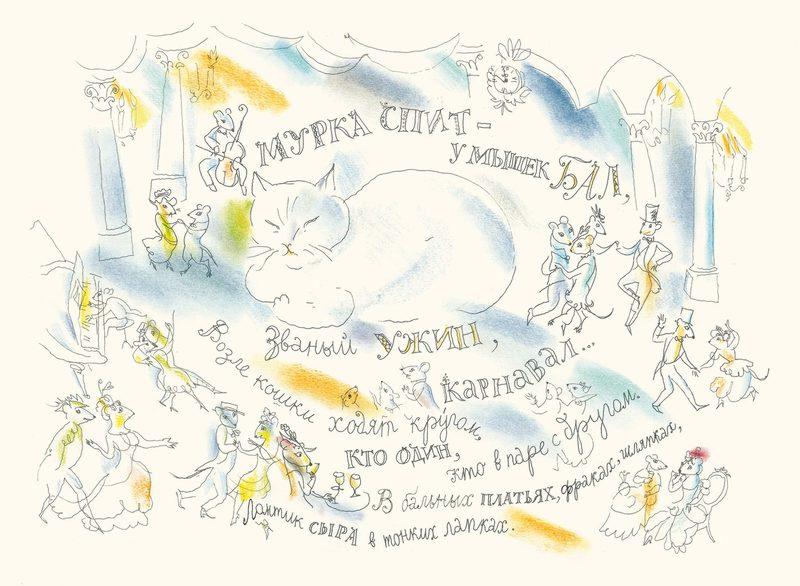 МУРКА СПИТ –
У МЫШЕК БАЛ,
Званый УЖИН,
КАРНАВАЛ...
Возле кошки ходят кругом,
КТО ОДИН,
кто в паре с другом.
В бальных ПЛАТЬЯХ, фраках, шляпках,
Ломтик СЫРА в тонких лапках.